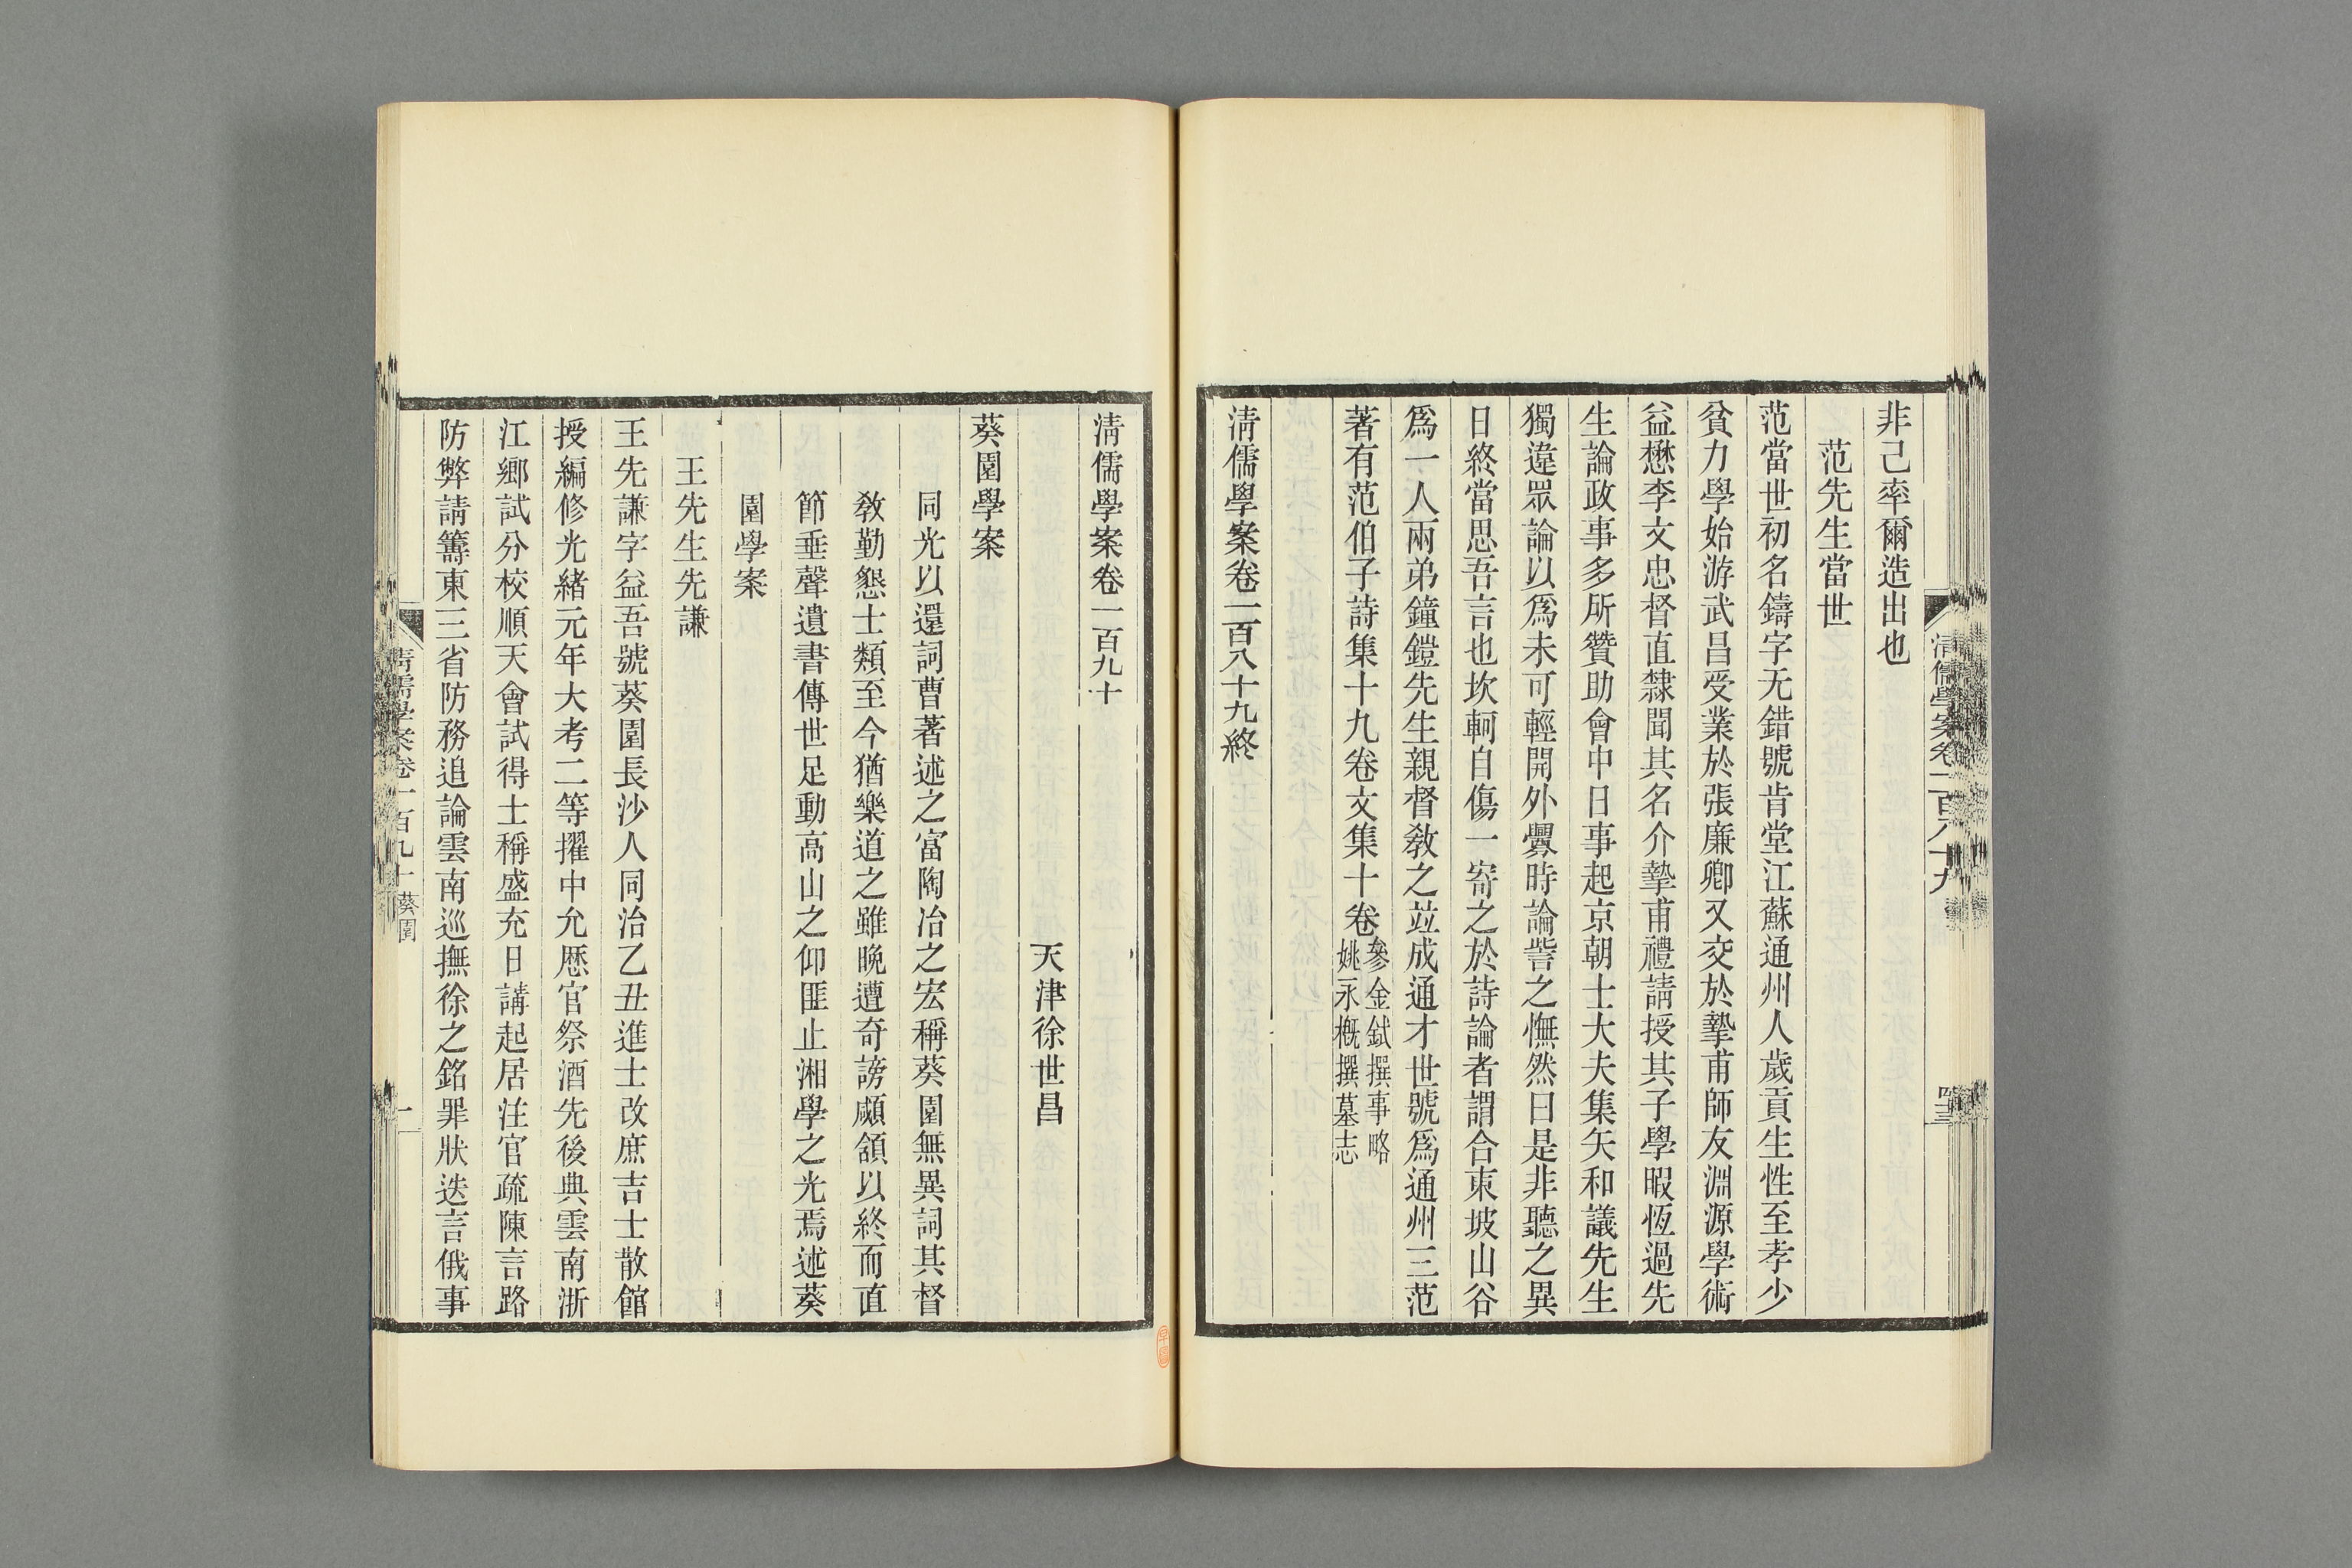 非己率爾造出也
范先生當世
范當世初名鑄字无錯號肯堂江蘇通州人歲貢生性至孝少
貧力學始游武昌受業於張廉卿又交於摯甫師友淵源學術
益懋李文忠督直隸聞其名介摯甫禮請授其子學暇恆過先
生論政事多所贊助會中日事起京朝士大夫集矢和議先生
獨違眾論以爲未可輕開外釁時論訾之憮然曰是非聽之異
日終當思吾言也坎軻自傷一寄之於詩論者謂合東坡山谷
爲一人兩弟鐘鎧先生親督敎之竝成通才世號爲通州三范
著有范伯子詩集十九卷文集十卷參金鉽撰事略姚永概撰墓志
清儒學案卷一百八十九終
清儒學案卷一百八十九
清儒學案卷一百九十
天津徐世昌
葵園學案
同光以還詞曹著述之富陶冶之宏稱葵園無異詞其督
敎勤懇士類至今猶樂道之雖晚遭奇謗顑頷以終而直
節垂聲遺書傳世足動高山之仰匪止湘學之光焉述葵
園學案
王先生先謙
王先謙字益吾號葵園長沙人同治乙丑進士改庶吉士散館
授編修光緒元年大考二等擢中允歷官祭酒先後典雲南浙
江鄉試分校順天會試得士稱盛充日講起居注官疏陳言路
防弊請籌東三省防務追論雲南巡撫徐之銘罪狀迭言俄事
清儒學案卷一百九十 葵園
一